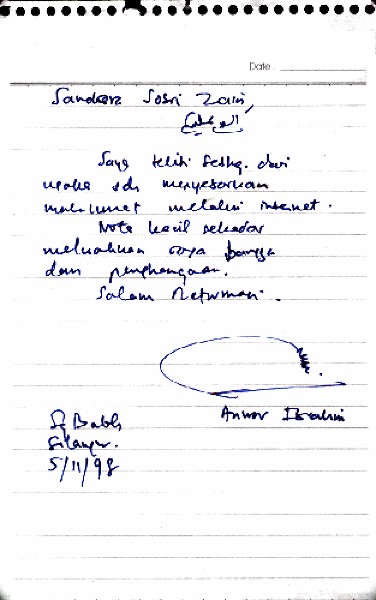 Date :
Saudara Sabri Zain,
Saya teliti sedkg. dari
usaha sdr menyebarkan
maklumat melalui internet.
Nota kecil sekadar
meluahkan rasa bangga
dan penghargaan.
Salam Reformasi.
Anwar Ibrahim
Sg Buloh
Selangor.
5/11/98